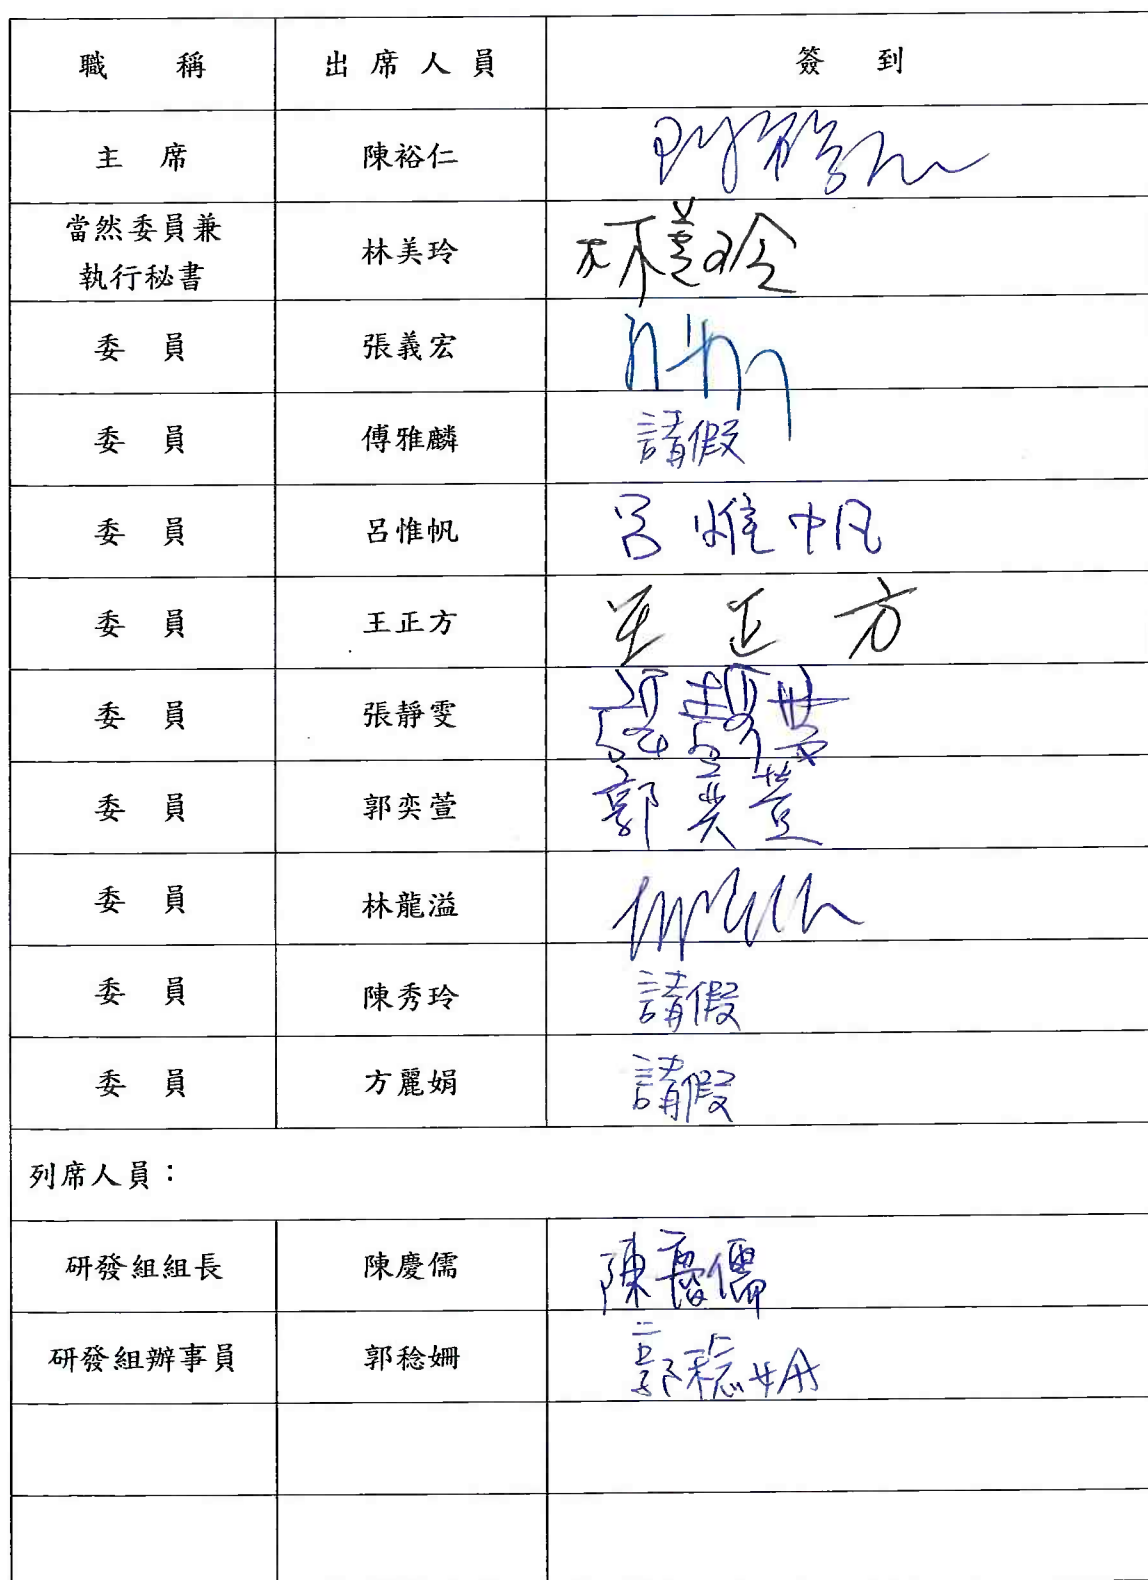 職 稱 出席人員 簽 到
主 席 陳裕仁 陳裕仁
當然委員兼
執行秘書 林美玲 林美玲
委 員 張義宏
委 員 傅雅麟 請假
委 員 呂惟帆 呂惟帆
委 員 王正方 王正方
委 員 張靜雯 張靜雯
委 員 郭奕萱 郭奕萱
委 員 林龍溢
委 員 陳秀玲 請假
委 員 方麗娟 請假
列席人員：
研發組組長 陳慶儒 陳慶儒
研發組辦事員 郭稔姍 郭稔姍